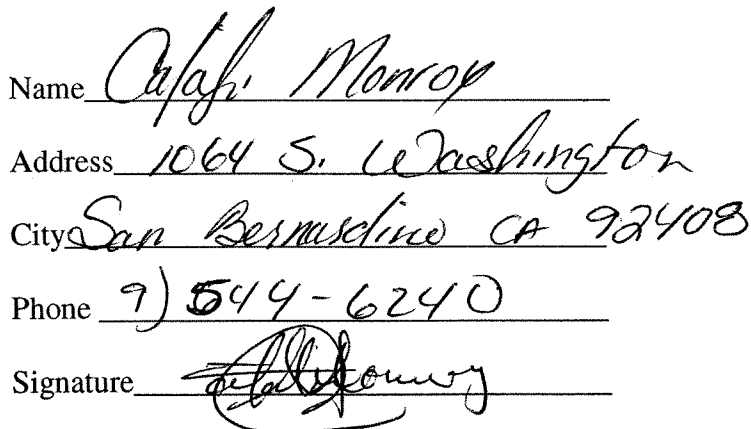 Name Calafi Monroy
Address 1064 S. Washington
City San Bernardino CA 92408
Phone 9) 544-6240
Signature